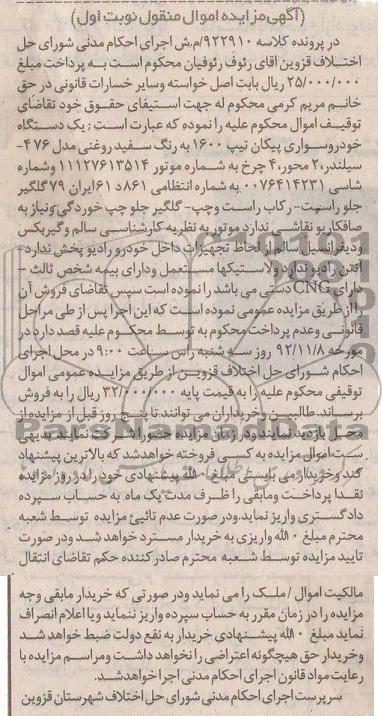 (آگهی مزایده اموال منقول نوبت اول)
در پرونده کلاسه ۹۲۲۹۱۰/م.ش اجرای احکام مدنی شورای حل
اختلاف قزوین اقای رئوف رئوفیان محکوم است به پرداخت مبلغ
۲۵/۰۰۰/۰۰۰ ریال بابت اصل خواسته وسایر خسارات قانونی در حق
خانم مریم کرمی محکوم له جهت استیفای حقوق خود تقاضای
توقیف اموال محکوم علیه را نموده که عبارت است : یک دستگاه
خودروسواری پیکان تیپ ۱۶۰۰ به رنگ سفید روغنی مدل ۷۶-۴
سیلندر،۲ محور،۴ چرخ به شماره موتور ۱۱۱۲۷۶۱۳۵۱۴ وشماره
شاسی ۰۰۷۶۴۱۴۲۳۱ به شماره انتظامی ۸۶۱د۶۱ ایران ۷۹ گلگیر
جلو راست- رکاب راست وچپ- گلگیر جلو چپ خوردگی ونیاز به
صافکاریو نقاشی ندارد موتور به نظریه کارشناسی سالم وگیربکس
ودیفرانسیل سالم از لحاظ تجهیزات داخل خودرو رادیو پخش ندارد-
آنتن رادیو ندارد ولاستیکها مستعمل ودارای بیمه شخص ثالث -
دارای CNG دستی می باشد را نموده است سپس تقاضای فروش آن
را از طریق مزایده عمومی نموده است که این اجرا پس از طی مراحل
قانونی وعدم پرداخت محکوم به توسط محکوم علیه قصد دارد در
مورخه ۹۲/۱۱/۸ روز سه شنبه راس ساعت ۹:۰۰ در محل اجرای
احکام شورای حل اختلاف قزوین از طریق مزایده عمومی اموال
توقیفی محکوم علیه را به قیمت پایه ۳۲/۰۰۰/۰۰۰ ریال را به فروش
برساند. طالبین وخریداران می توانند تا پنج روز قبل از مزایده از
محل بازدید نمایند ودر زمان مزایده حضورا شرکت نمایند بدیهی
ست اموال مزایده به کسی فروخته خواهدشد که بالاترین پیشنهاد
کند وخریدار می بایستی مبلغ ٪۱۰ پیشنهادی خود را در روز مزایده
نقدا پرداخت ومابقی را ظرف مدت یک ماه به حساب سپرده
دادگستری واریز نماید.ودر صورت عدم تائیئ مزایده توسط شعبه
محترم مبلغ ٪۱۰ واریزی به خریدار مسترد خواهد شد ودر صورت
تایید مزایده توسط شعبه محترم صادر کننده حکم تقاضای انتقال
مالکیت اموال / ملک را می نماید ودر صورتی که خریدار مابقی وجه
مزایده را در زمان مقرر به حساب سپرده واریز ننماید ویا اعلام انصراف
نماید مبلغ ٪۱۰ پیشنهادی خریدار به نفع دولت ضبط خواهد شد
وخریدار حق هیچگونه اعتراضی را نخواهد داشت ومراسم مزایده با
رعایت مواد قانون اجرای احکام مدنی اجرا خواهدشد.
سرپرست اجرای احکام مدنی شورای حل اختلاف شهرستان قزوین
ParsNamadData